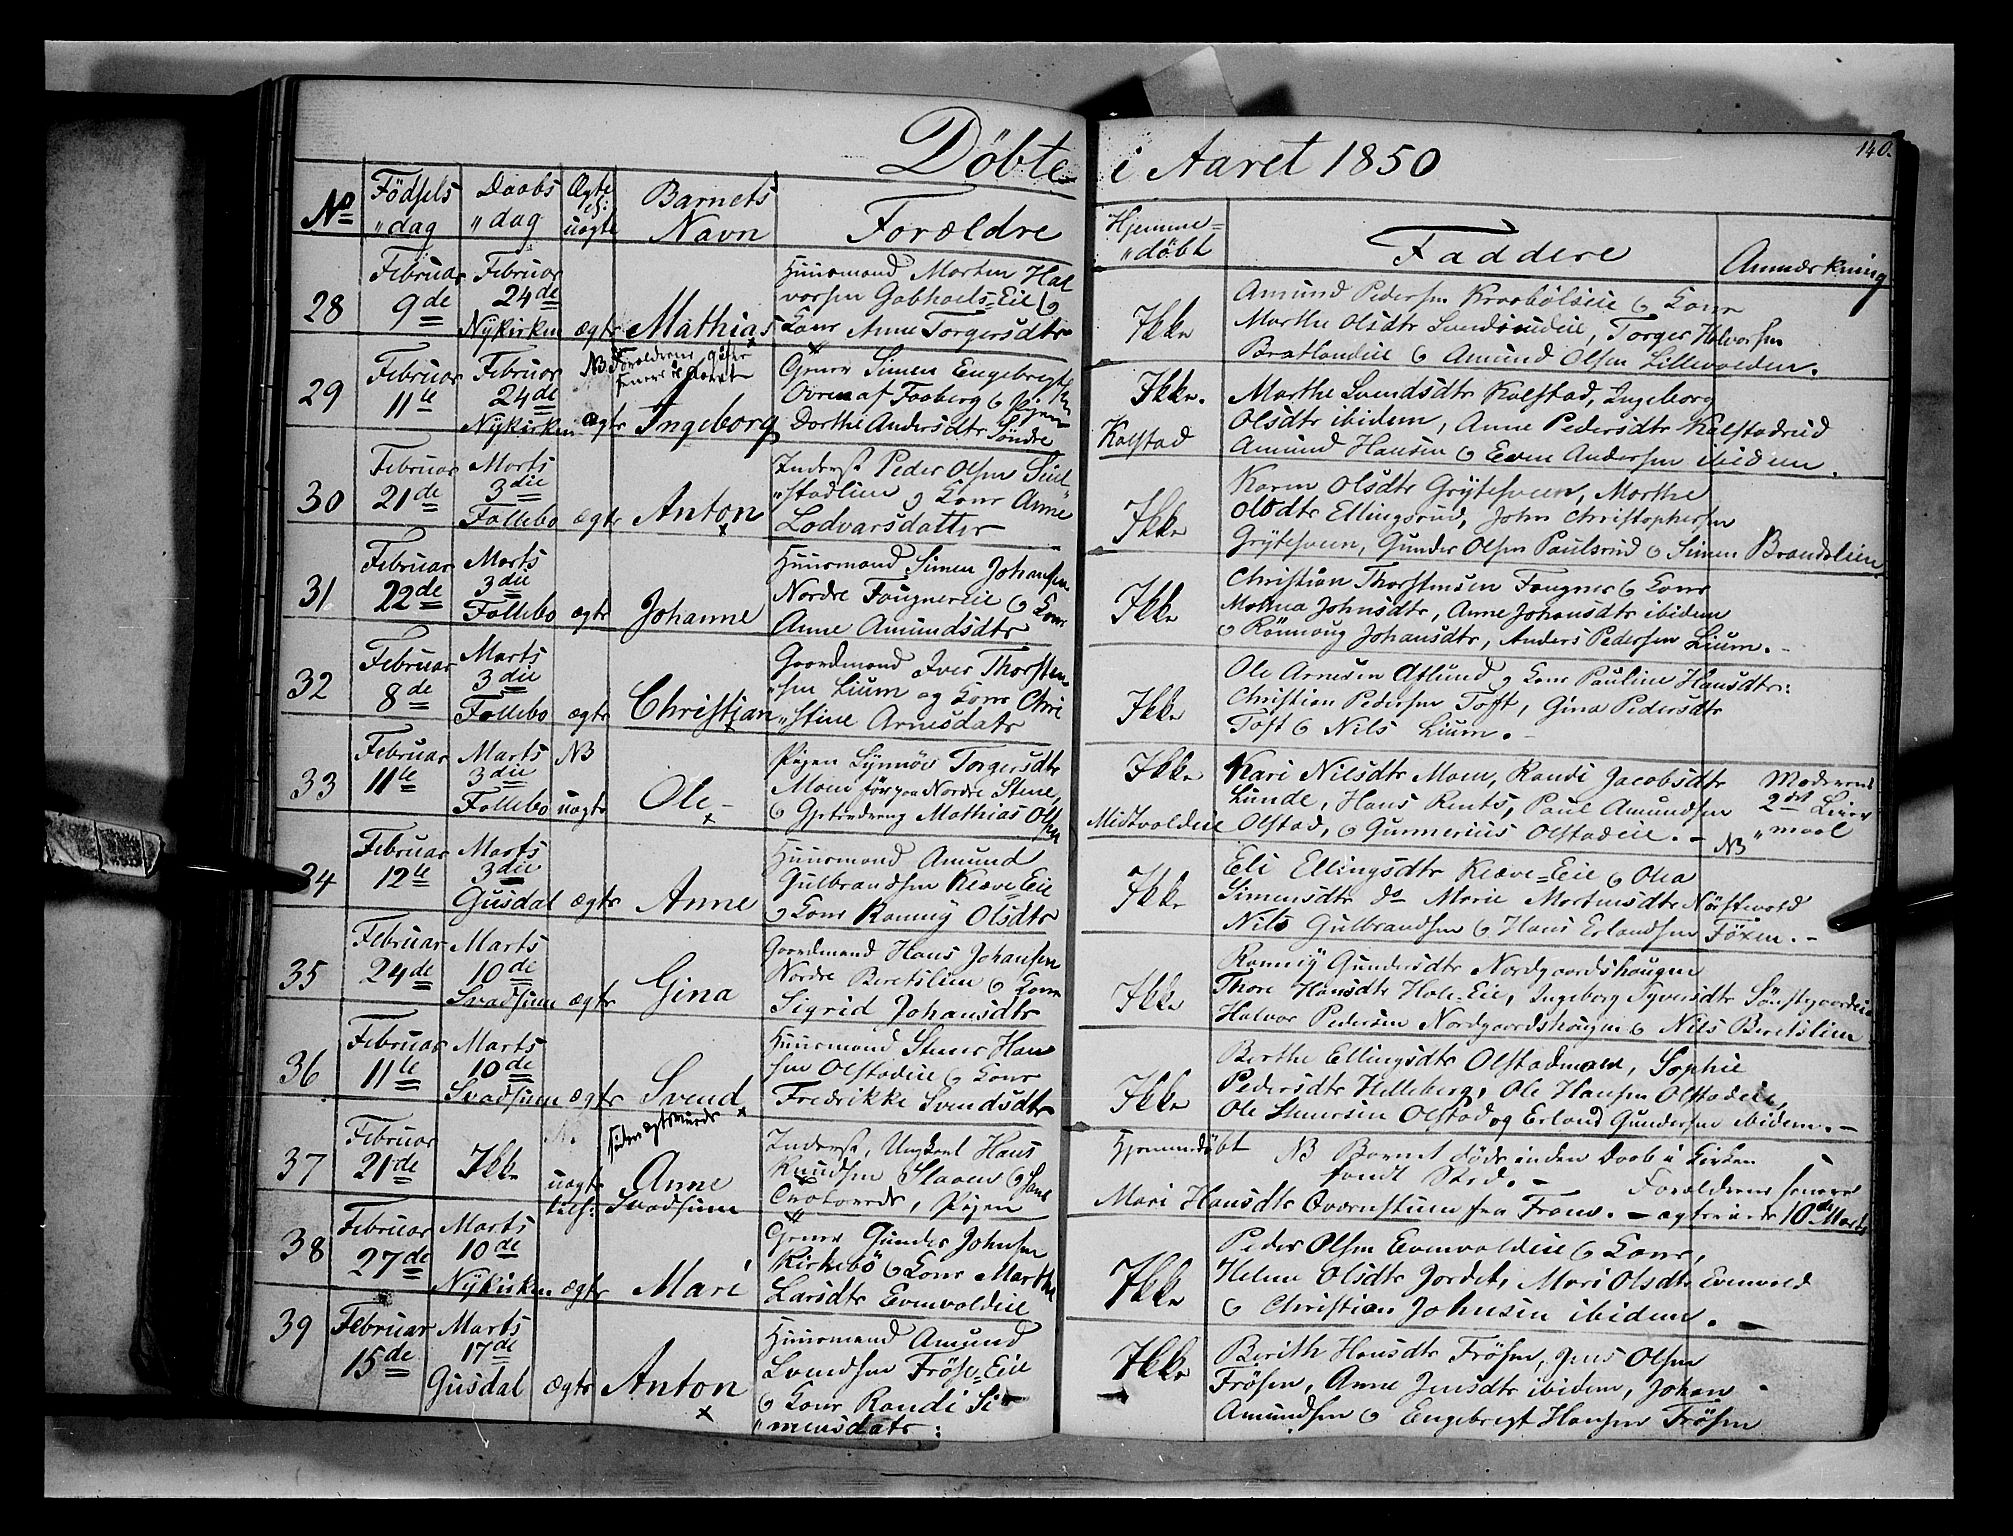 Döbte i Aaret 1850
140.
No Födsels „dag Daabs „dag Ægte el: uægte Barnets Navn Forældre Hjemme= „döbt Faddere Anmærkning
28 Februar 9de Februar 24de Nykirken ægte Mathias
Huusmand Morten Hal
vorsen Eie og
Kone Anne Torgersdtr
Ikke
Amund Pedersen og Kone
Marthe Olsdtr Torger Halvorsen
og Amund Olsen Lillevolden.
29 Februar 11te Februar 24de Nykirken ægte Ingeborg
NB Forældrene
Gener Simen Engebregtsen
Ovren af Faaberg og Pigen
Dorthe Andersdtr Söndre
Kalstad
Ikke.
Marthe Svendsdtr Kalstad, Ingeborg
Olsdtr ibidem, Anne Pedersdtr Kalstadrud
Amund Hansen og Even Andersen ibidem.
30 Februar 21de Marts 3die Follebo ægte Anton
Inderst Peder Olsen
„stadlien og Kone Anne
Lodvarsdatter
Ikke
Karen Olsdtr Grytesveen, Marthe
Olsdtr Ellingsrud, John Christophersen
Grytesveen, Gunder Olsen Paulsrud og Simen Brandslien
31. Februar 22de Marts 3die Follebo ægte Johanne
Huusmand Simen Johansen
Nordre Fougner Eie og Kone
Anne Amundsdtr
Ikke
Christian Thorstensen Fougner og Kone
Mathea Johnsdtr, Anne Johansdtr ibidem
og Rönnoug Johansdtr, Anders Pedersen Lium. -
32 Februar 8de Marts 3die Follebo ægte Christian
Gaardmand Iver Thorsten
„sen Lium og Kone Chri
„stine Arnesdatr
Ikke
Ole Arnesen Aslund og Kone Pauline Hansdtr:
Christian Pedersen Toft, Gina Pedersdtr
Toft og Nils Lium. -
33 Februar 11te Marts 3die Follebo NB uægte Ole -
Pigen Synnöv Torgersdtr
Moen för paa Nordre Stene,
og Gjetedreng Mathias Olsen
Midtvoldeie
Ikke
Kari Nilsdtr Moen, Randi Jacobsdtr
Lunde, Hans Rents, Paul Amundsen
Olstad, og Gunnerius Olstadeie. -
Moderens
2det Leier
„maal
NB
34 Februar 12te Marts 3die Gusdal ægte Anne
Huusmand Amund
Gulbrandsen Kleve=Eie
og Kone Ronnig Olsdtr
Ikke
Eli Ellingsdtr Kleve=Eie og Olia
Simensdtr do Marie Mortensdtr Nörstevold
Nils Gulbrandsen og Hans Erlandsen Föxen. -
35 Februar 24de Marts 10de Svadsum ægte Gina
Gaardmand Hans Johansen
Nordre Beretslien og Kone
Sigrid Johansdtr
Ikke
Ronnig Gundersdtr Nordgaardshougen
Thore Hansdtr Hole=Eie, Ingeborg Syversdtr
Halvor Pedersen Nordgaardshougen og Nils Beretslien
36 Februar 11te Marts 10de Svadsum ægte Svend
Huusmand Stener Han
sen Olstadeie og Kone
Fredrikke Svendsdtr
Ikke
Berthe Ellingsdtr Olstadmoen, Sophie
Pedersdtr Helleberg, Ole Hansen Olstadeie,
Ole Stenersen Olstad og Erland Gundersen ibidem. -
37 Februar 21de Ikke uægte Anne Svadsum
siden ægteviede
Inderst, Ungkarl Hans
Knudsen Slaaen og
Pigen
Mari Hansdtr Qværnstuen fra Fron. -
Hjemmedöbt
NB Barnet döde inden Daab i Kirken
fandt Sted. -
Forældrene senere
ægteviede 10de Marts
38 Februar 27de Marts 10de Nykirken ægte Mari
Gener Gunder Johnsen
Kirkebö og Kone Marthe
Larsdtr Evenvoldeie
Ikke
Peder Olsen Evenvoldeie og Kone,
Helene Olsdtr Jordet, Mari Olsdtr Evenvold
og Christian Johnsen ibidem. -
39 Februar 15de Marts 17de Gusdal ægte Anton
Huusmand Amund
Svendsen Fröse=Eie
og Kone Randi Si
„mensdatr:
Ikke
Berith Hansdtr Frösen, Jens Olsen
Frösen, Anne Jensdtr ibidem, Johan
Amundsen og Engebregt Hansen Frösen